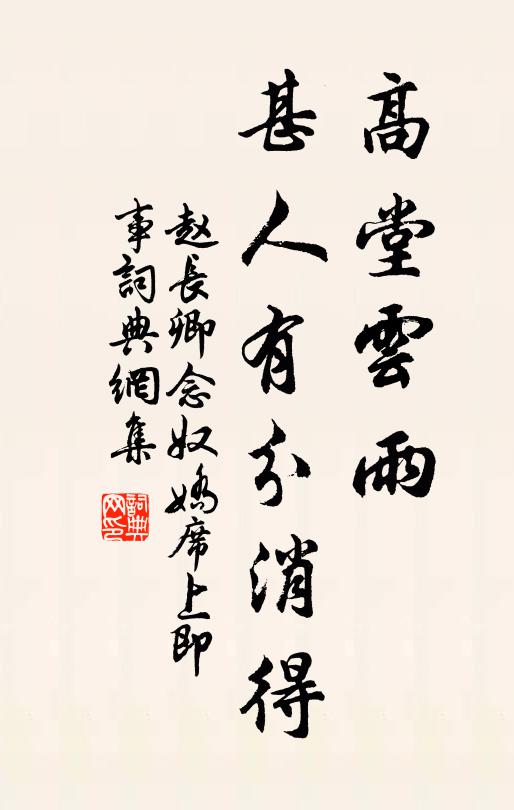 高堂雲雨
甚人有分消得
赵長卿念奴嬌席上即
事詞典網集
詞典
网印